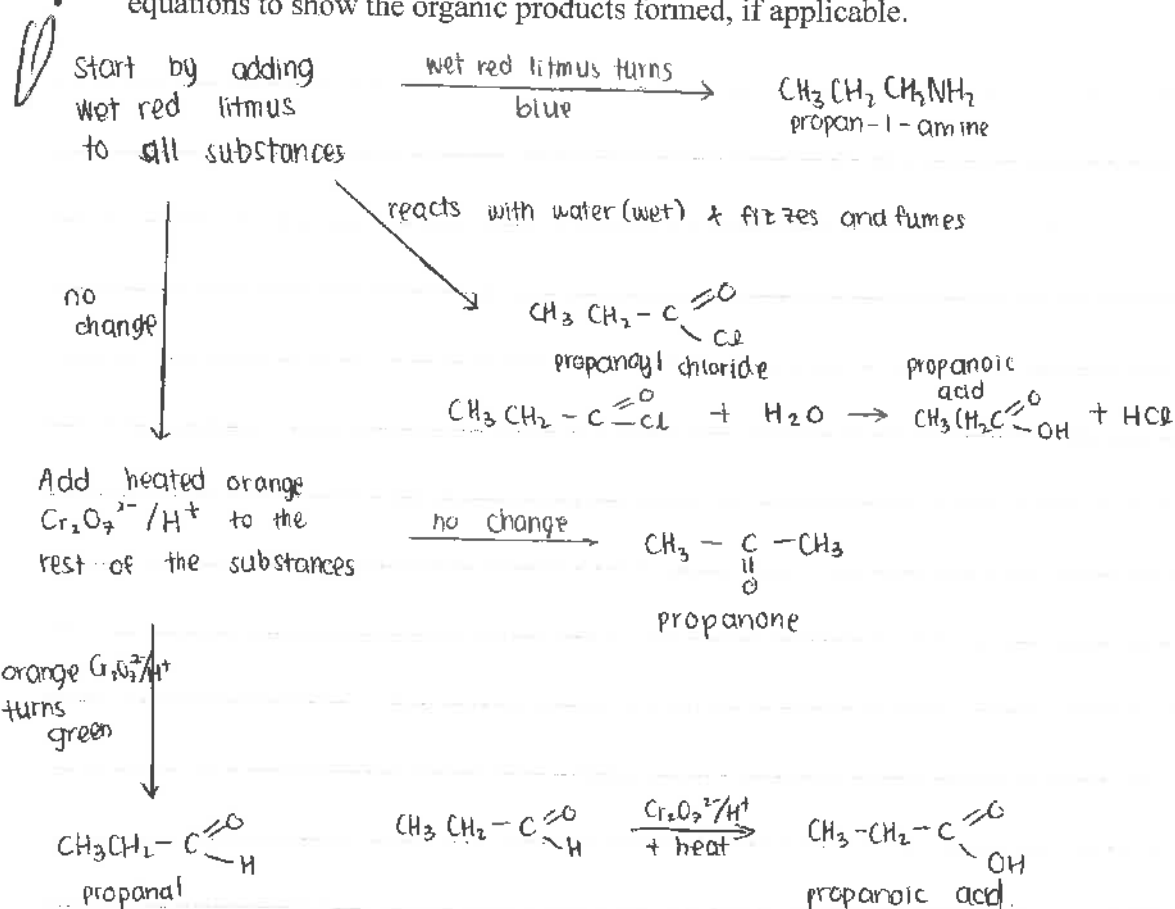 equations to show the organic products formed, if applicable.
Start by adding
wet red litmus
to all substances
wet red litmus turns
blue
CH₃ CH₂ CH₂NH₂
propan-1-amine
reacts with water (wet) & fizzes and fumes
no
change
CH₃ CH₂ - C
O
Cl
propanoyl chloride
propanoic
acid
CH₃ CH₂ - C =O -Cl + H₂O → CH₃CH₂C =O -OH + HCl
Add heated orange
Cr₂O₇²⁻/H⁺ to the
rest of the substances
no change
CH₃ - C - CH₃
||
O
propanone
orange Cr₂O₇²⁻/H⁺
turns
green
CH₃CH₂- C =O -H
propanal
CH₃ CH₂ - C =O -H
Cr₂O₇²⁻/H⁺
+ heat
CH₃ -CH₂ - C =O
OH
propanoic acid.